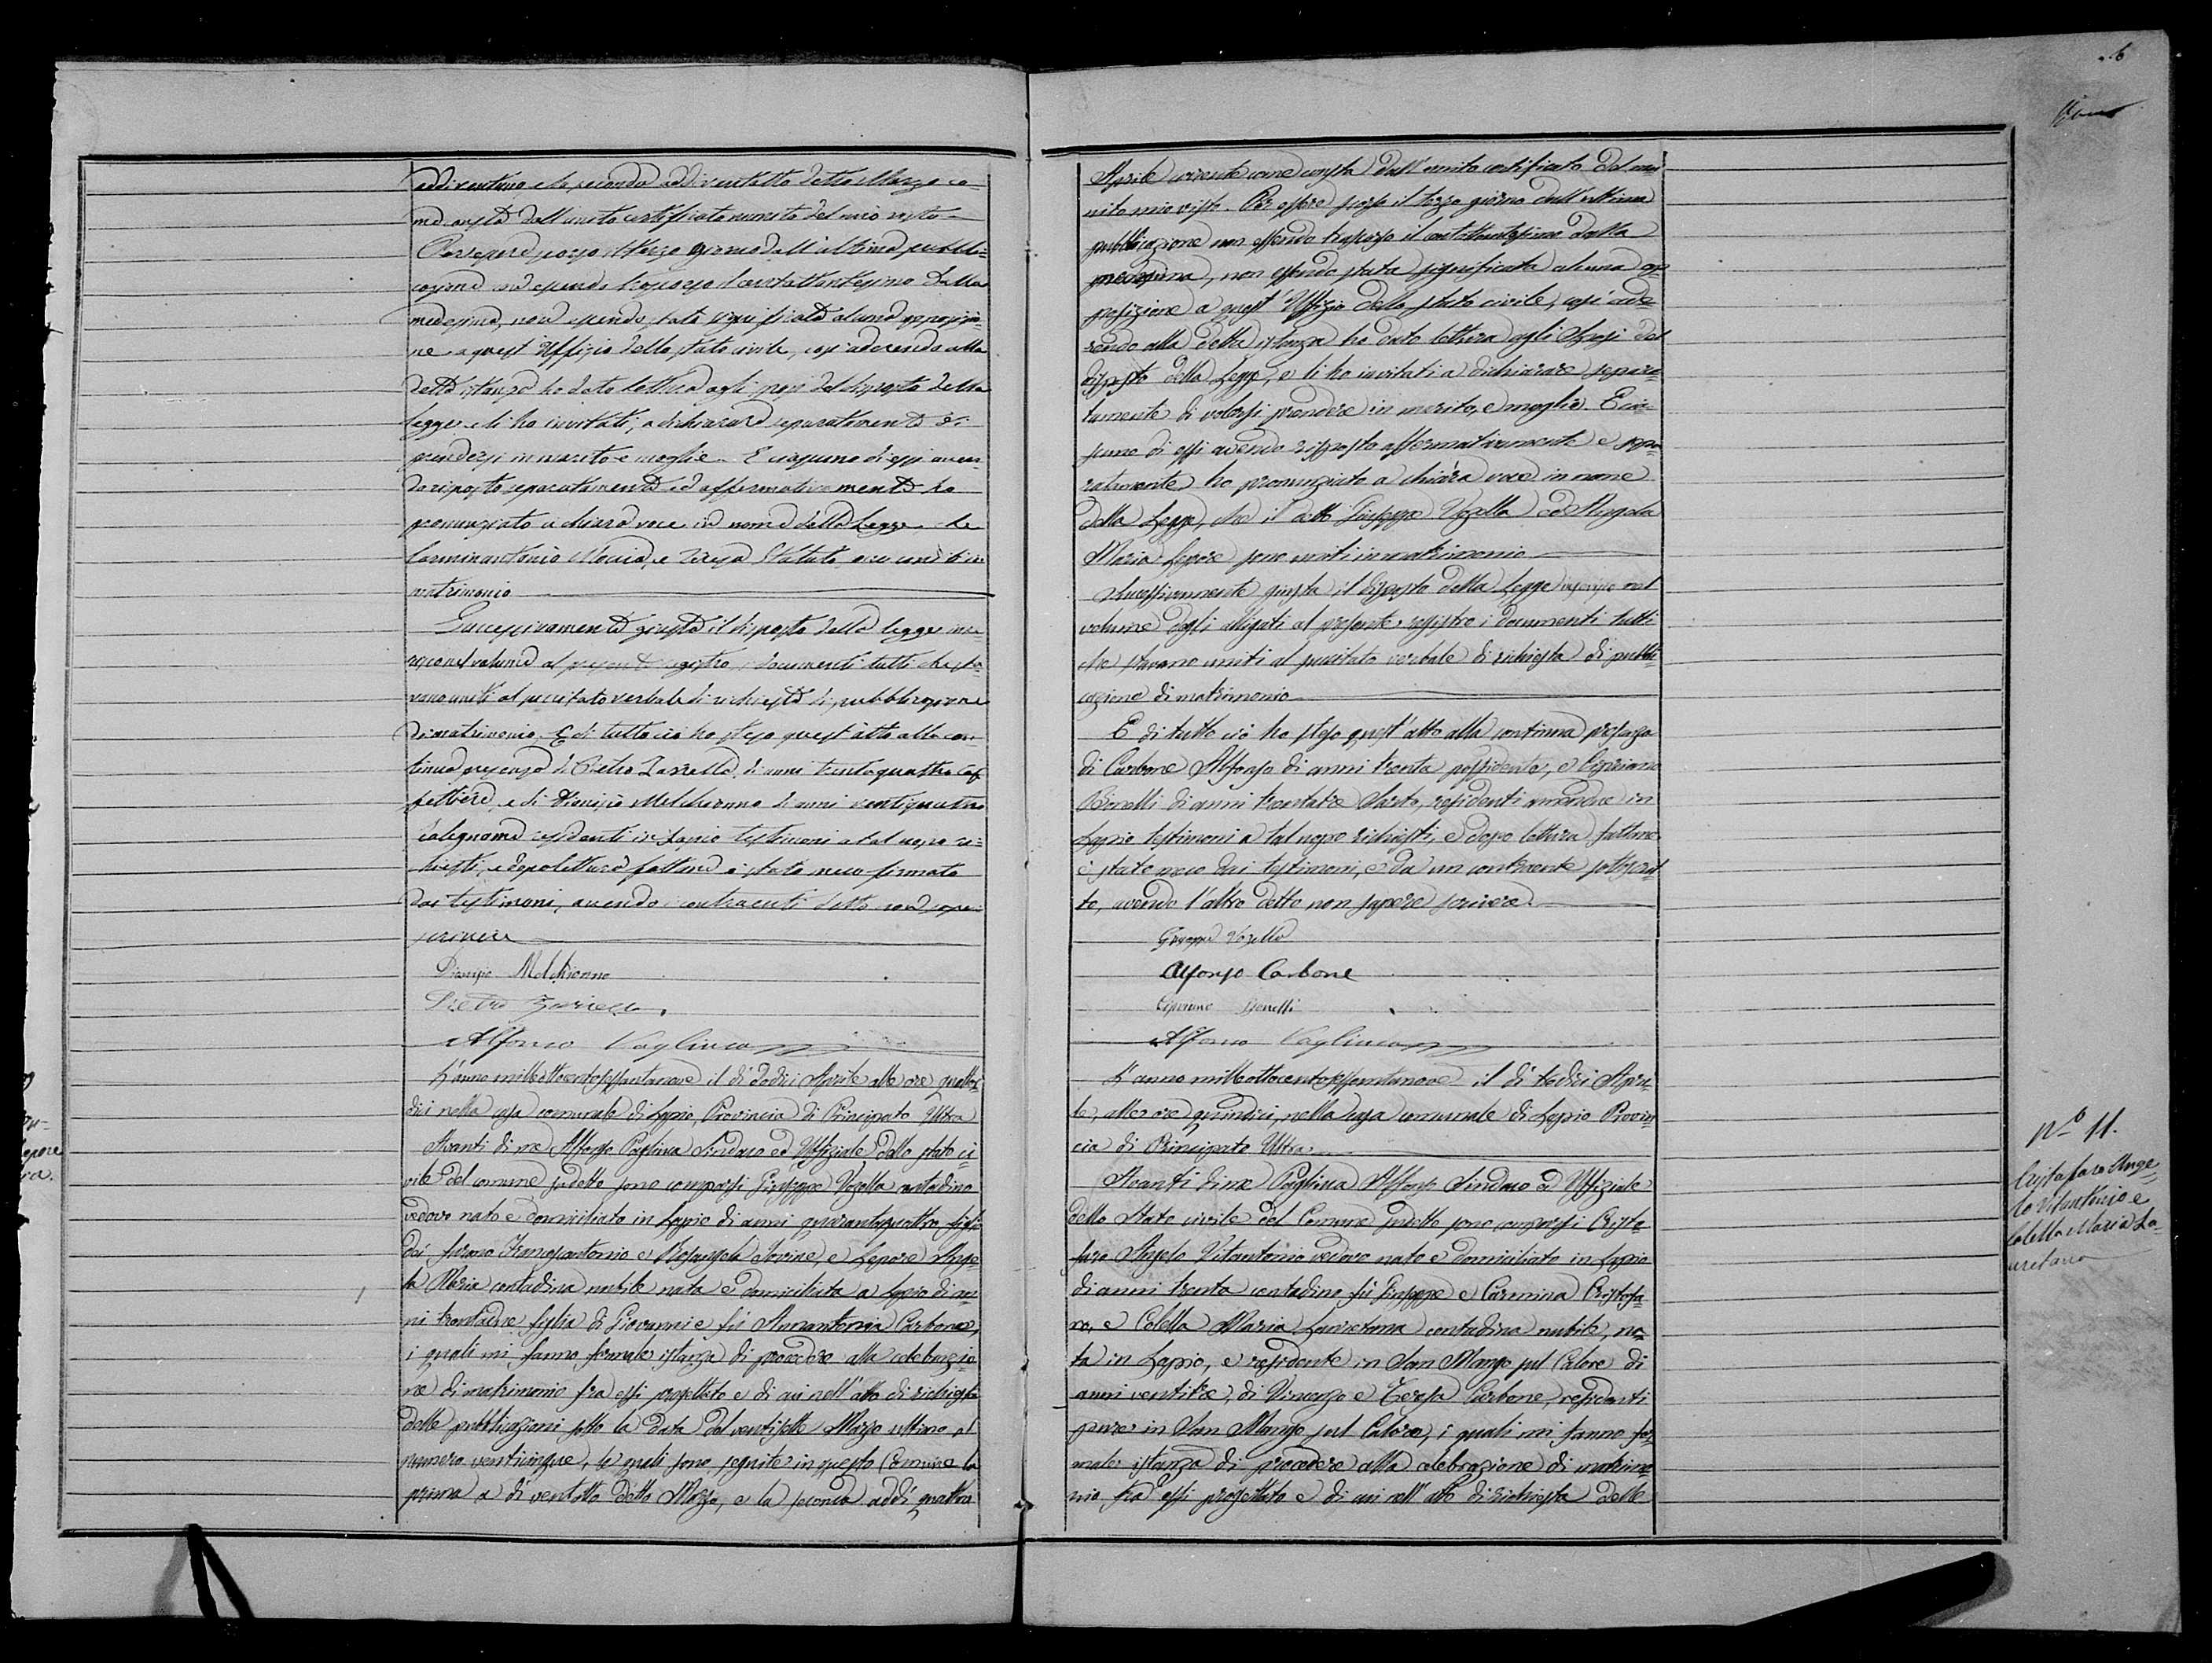 addì ventuno e la seconda addì ventotto detto Marzo co=
me consta dall'unito certificato munito del mio visto
Per essere scorso il terzo giorno dall'ultima pubbli=
cazione nè essendo trascorso il centottantesimo dalla
medesima, non essendo stata significata alcuna opposizio=
ne a quest'Uffizio dello stato civile, così aderendo alla
detta istanza ho dato lettura agli sposi del disposto della
legge e li ho invitati, a dichiarare separatamente di
prendersi in marito e moglie. E ciascuno di essi aven=
do risposto separatamente ed affermativamente ho
pronunziato a chiara voce in nome della Legge, che
Carminantonio Moccia, e Teresa Statuto sono uniti in
matrimonio
Successivamente giusta il disposto della legge inse=
risco nel volume al presente registro i documenti tutti che sta=
vano uniti al precitato verbale di richiesta di pubblicazione
di matrimonio. E di tutto ciò ho steso quest'atto alla con=
tinua presenza di Pietro Zarrella di anni trentaquattro caf=
fettiere, e di Dionisio Melchionno di anni ventiquattro
falegname residenti in Lapio testimoni a tal uopo ri=
chiesti, e dopo lettura fattane è stato meco firmato
dai testimoni, avendo i contraenti detto non saper
scrivere
Dionisio Melchionno
Pietro Zarrella
Alfonso Pagliuca
L'anno mille ottocentosettantanove il dì dodici Aprile alle ore quattor=
dici nella casa comunale di Lapio, Provincia di Principato Ultra
Avanti di me Alfonso Pagliuca Sindaco ed Uffiziale dello stato ci=
vile del comune sudetto sono comparsi Giuseppe Vozella contadino
vedovo nato e domiciliato in Lapio di anni quarantaquattro figlio
dei furono Francescantonio e Mariangela Iovine, e Lepore Ange=
la Maria contadina nubile nata e domiciliata a Lapio di an=
ni trentadue figlia di Giovanni e fu Annantonia Carbone,
i quali mi fanno formale istanza di procedere alla celebrazio=
ne di matrimonio fra essi progettato e di cui nell'atto di richiesta
delle pubblicazioni sotto la data del ventisette Marzo ultimo al
numero venticinque, le quali sono seguite in questo Comune la
prima a dì ventotto detto Marzo, e la seconda addì quattro
Aprile corrente come consta dall'unito certificato del mu=
nito mio visto. Per essere scorso il terzo giorno dall'ultima
pubblicazione non essendo trascorso il centottantesimo dalla
medesima, non essendo stata significata alcuna op=
posizione a quest'Uffizio dello stato civile, così ade=
rendo alla detta istanza ho dato lettura agli Sposi del
disposto della Legge, e li ho invitati a dichiarare separa=
tamente di volersi prendere in marito, e moglie. E cia=
scuno di essi avendo risposto affermativamente e sepa=
ratamente ho pronunziato a chiara voce in nome
della Legge, che il detto Giuseppe Vozella ed Angela
Maria Lepore sono uniti in matrimonio
Successivamente giusta il disposto della Legge inserisco nel
volume degli alligati al presente registro i documenti tutti
che stavano uniti al precitato verbale di richiesta di pubbli=
cazione di matrimonio
E di tutto ciò ho steso quest'atto alla continua presenza
di Carbone Alfonso di anni trenta possidente, e Cipriano
Bonelli di anni trentatre Sarto, residenti amendue in
Lapio testimoni a tal uopo richiesti, e dopo lettura fattane
è stato meco dai testimoni, e da un contraente sottoscrit=
to, avendo l'altro detto non sapere scrivere.
Giuseppe Vozella
Alfonso Carbone
Cipriano Bonelli
Alfonso Pagliuca
L'anno milleottocentosettantanove il dì tredici Apri=
le, alle ore quindici, nella casa comunale di Lapio Provin=
cia di Principato Ultra
Avanti di me Pagliuca Alfonso Sindaco ed Uffiziale
dello Stato civile del Comune sudetto sono comparsi Cristo=
faro Angelo Vitantonio vedovo nato e domiciliato in Lapio
di anni trenta contadino fu Giuseppe e Carmina Cristofa=
ro, e Coletta Maria Lauretana contadina nubile, na=
ta in Lapio, e residente in San Mango sul Calore di
anni ventitre, di Vincenzo e Teresa Carbone, residenti
pure in San Mango sul Calore, i quali mi fanno for=
male istanza di procedere alla celebrazione di matrimo=
nio fra essi progettato e di cui nell'atto di richiesta delle
N.o 11.
Cristofaro Ange=
lo Vitantonio e
Coletta Maria La=
uretana